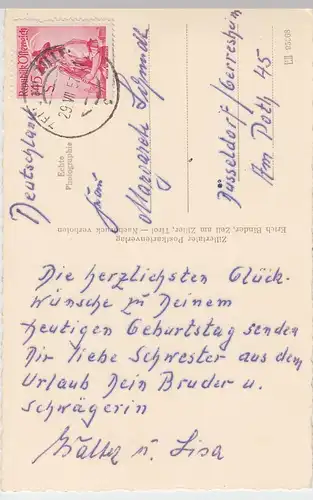 Republik Österreich
1.45 S
29.VII.5
Deutschland
Echte
Photographie
Frau
Margarete Schmidt
Düsseldorf/Gerresheim
Am Poth 45
Zillertaler Postkartenverlag
Erich Binder, Zell am Ziller, Tirol - Nachdruck verboten
Die herzlichsten Glück-
wünsche zu Deinem
heutigen Geburtstag senden
Dir liebe Schwester aus dem
Urlaub Dein Bruder u.
Schwägerin
Walter u. Lisa